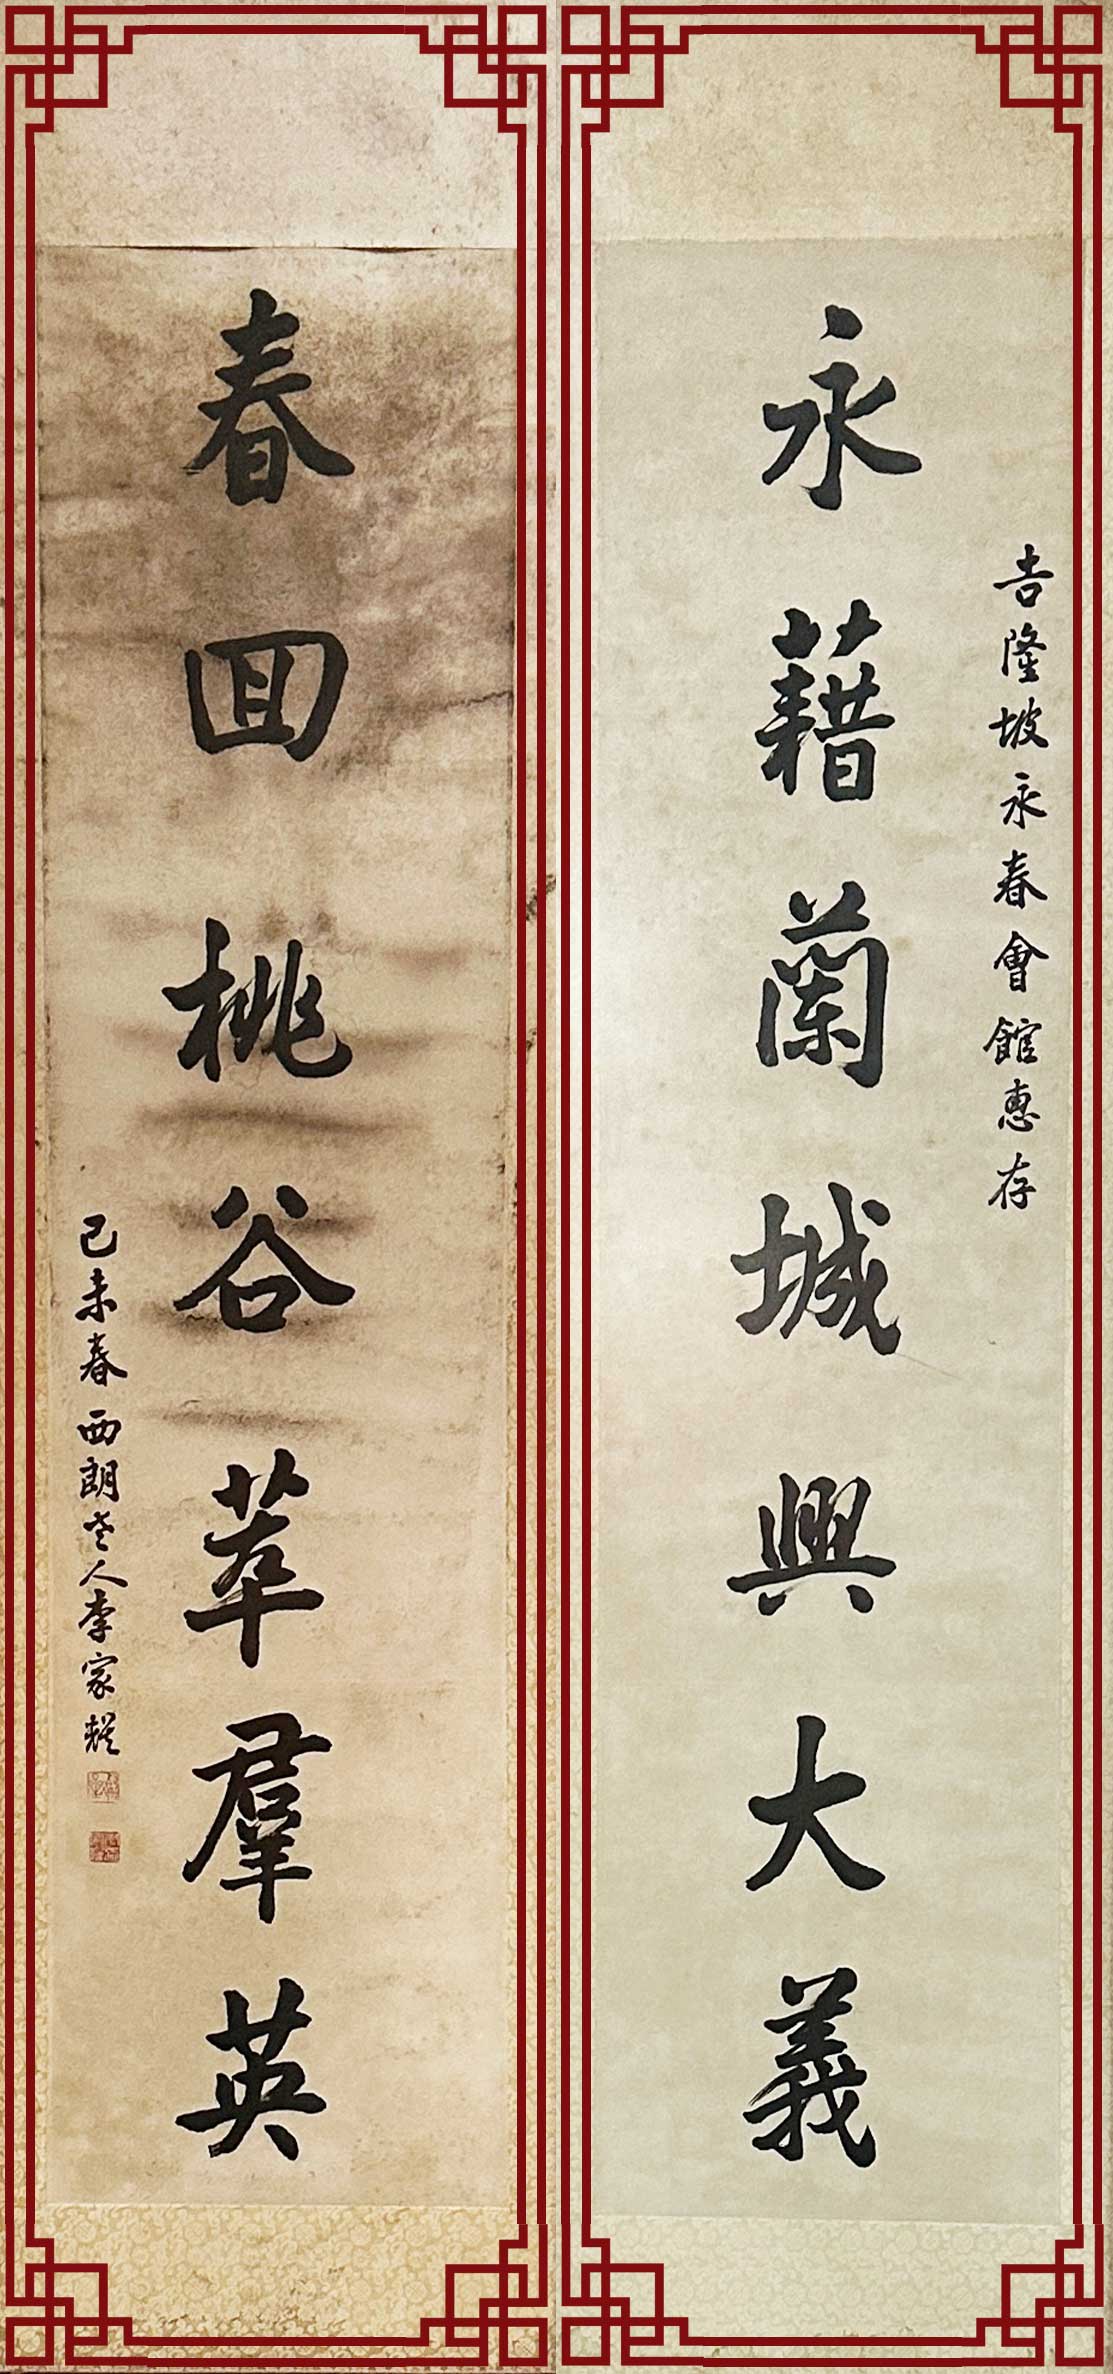 吉隆坡永春會館惠存
永藉蘭城興大義
春回桃谷萃羣英
己未春西朗老人李家耀